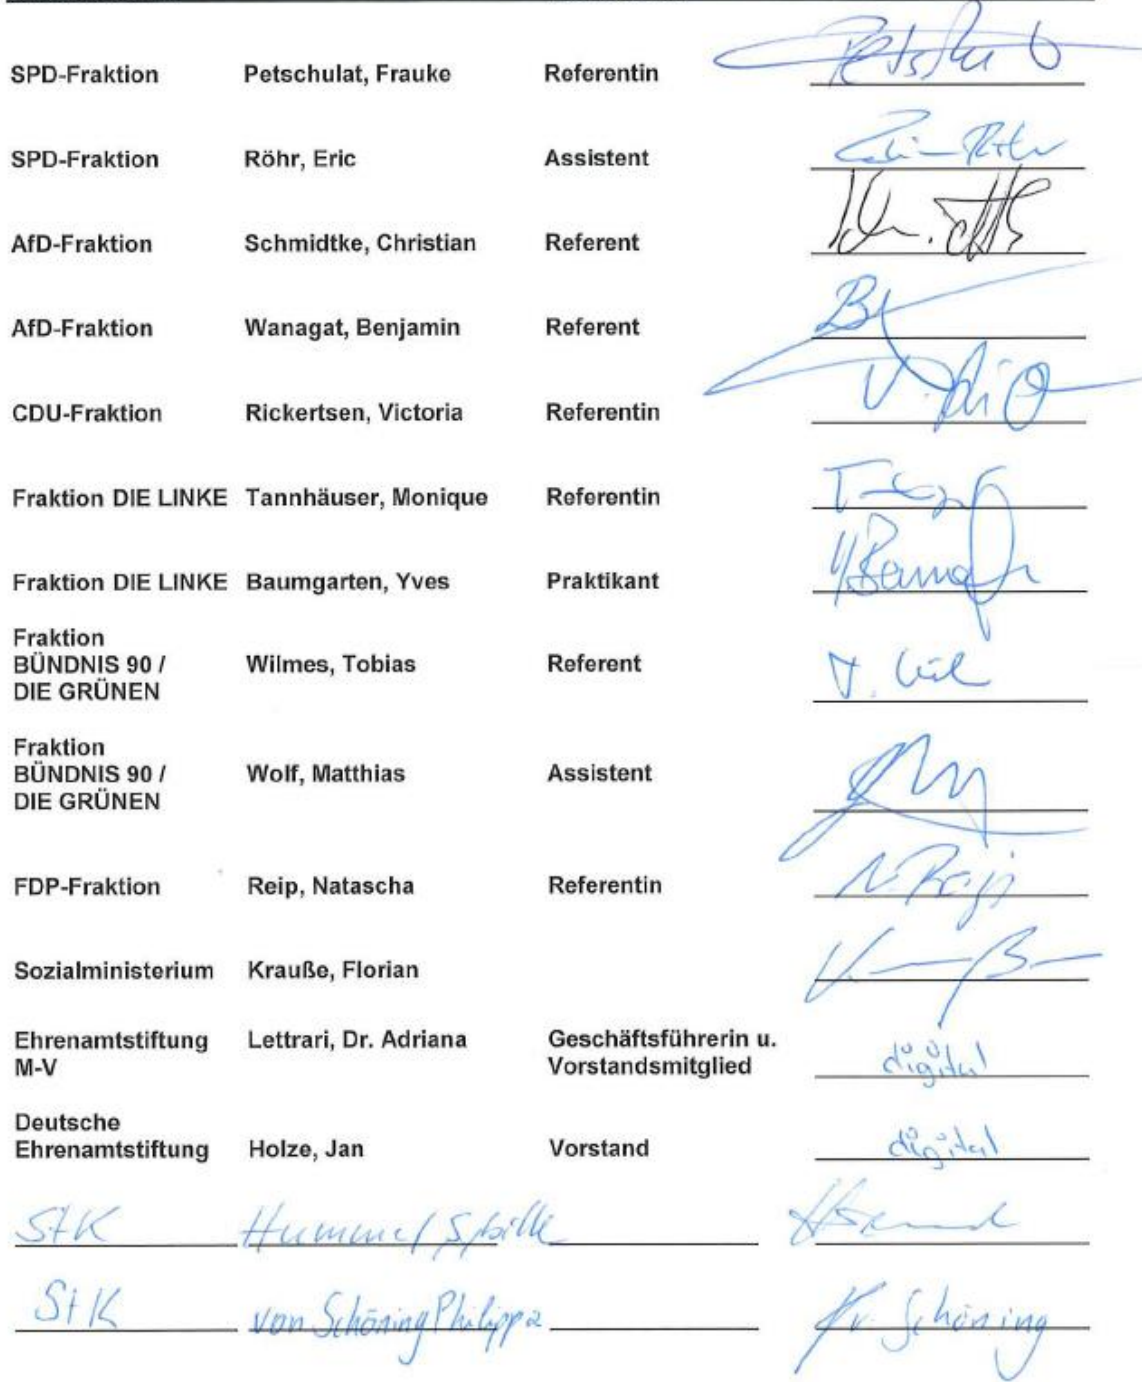 SPD-Fraktion Petschulat, Frauke Referentin
SPD-Fraktion Röhr, Eric Assistent
AfD-Fraktion Schmidtke, Christian Referent
AfD-Fraktion Wanagat, Benjamin Referent
CDU-Fraktion Rickertsen, Victoria Referentin
Fraktion DIE LINKE Tannhäuser, Monique Referentin
Fraktion DIE LINKE Baumgarten, Yves Praktikant
Fraktion
BÜNDNIS 90 / Wilmes, Tobias Referent
DIE GRÜNEN
Fraktion
BÜNDNIS 90 / Wolf, Matthias Assistent
DIE GRÜNEN
FDP-Fraktion Reip, Natascha Referentin N. Reip
Sozialministerium Krauße, Florian
Ehrenamtstiftung Lettrari, Dr. Adriana Geschäftsführerin u.
M-V Vorstandsmitglied digital
Deutsche
Ehrenamtstiftung Holze, Jan Vorstand digital
StK Hummel Sybille
StK von Schöning Philippa v. Schöning